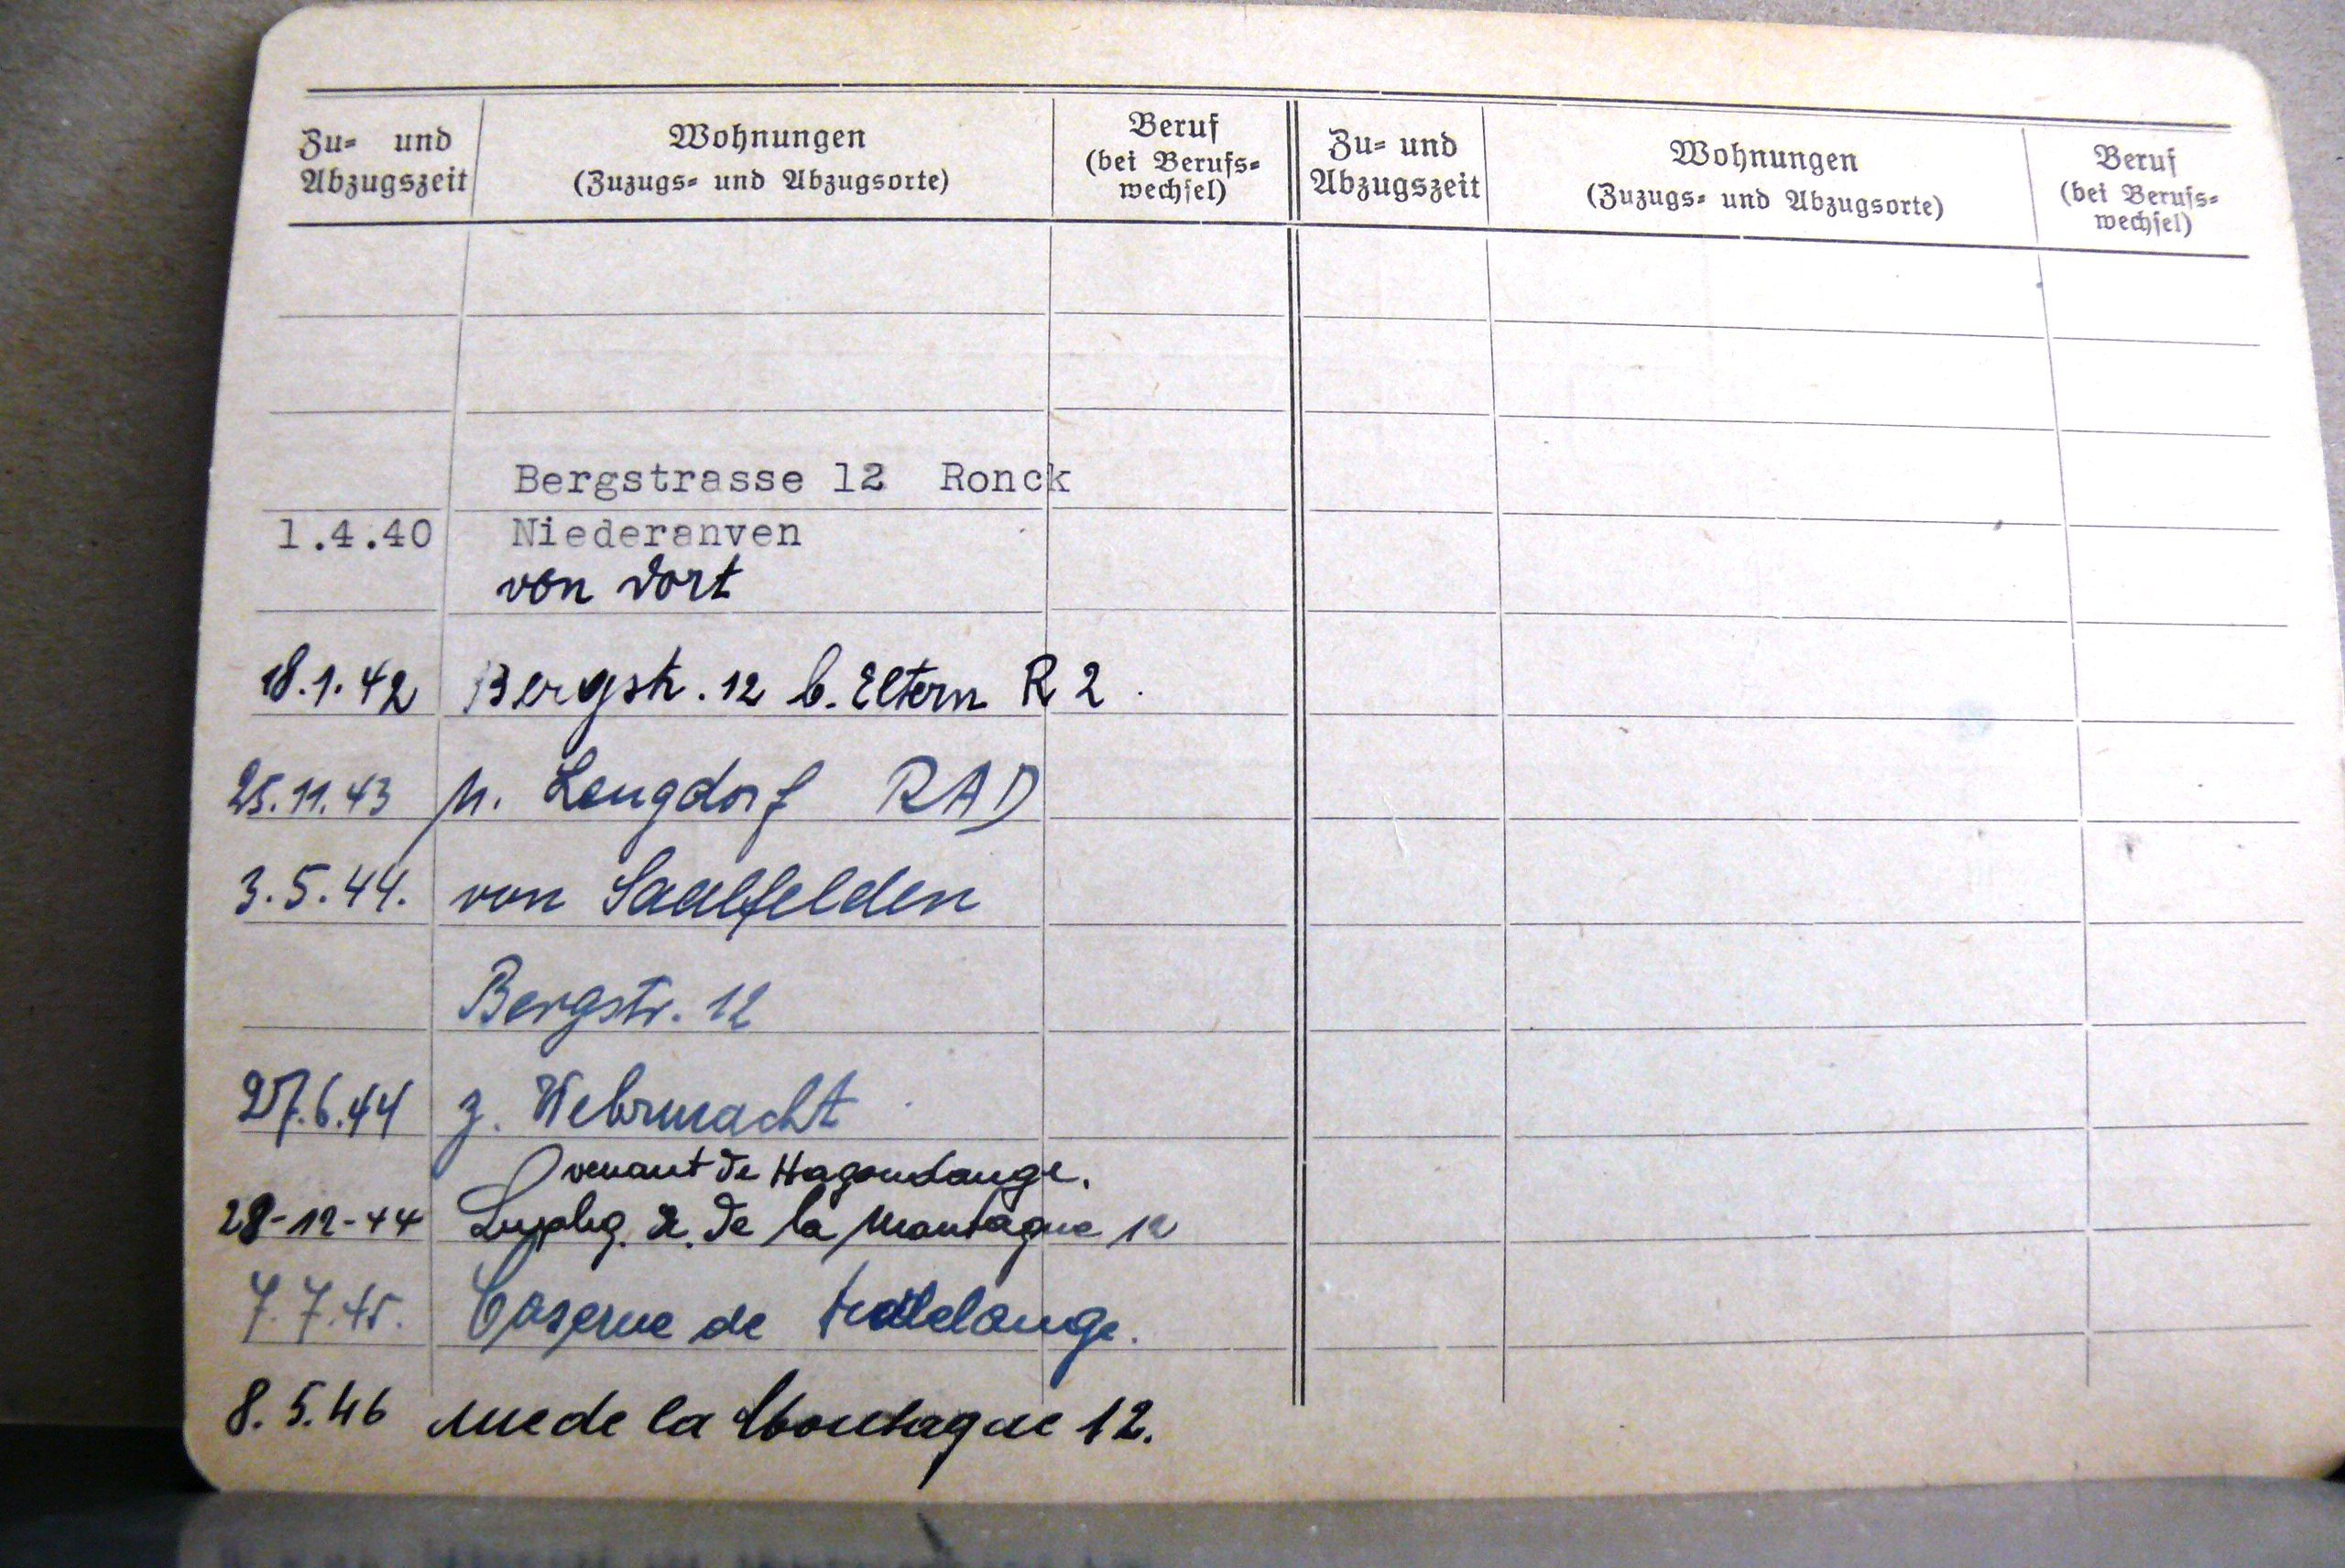 Zu= und Abzugszeit
Wohnungen
(Zuzugs= und Abzugsorte)
Beruf
(bei Berufs=
wechsel)
Zu= und Abzugszeit
Wohnungen
(Zuzugs= und Abzugsorte)
Beruf
(bei Berufs=
wechsel)
Bergstrasse 12 Ronck
1.4.40 Niederanven
von dort
18.1.42 Bergstr. 12 b. Eltern R 2
25.11.43 n. Lengdorf RAD
3.5.44. von Saalfelden
Bergstr. 12
27.6.44 z. Wehrmacht
venant de Hagondange.
28-12-44 R. de la Montagne 12
7.7.45. Caserne de
8.5.46 rue de la Montagne 12.